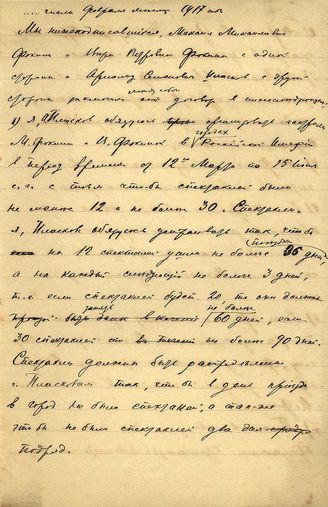 .... числа Февраля месяца 1917 года
Мы нижеподписавшиеся, Михаил Михайлович
Фокин и Вера Петровна Фокина с одной
стороны и Арнольд Семенович с другой
стороны между собой договор в нижеследующем:
1) я, обязуюсь организовать гастроли
М. Фокина и В. Фокиной в городах Российской Империи
в период времени от 12го Марта по 15 Июня
с. г. с тем чтобы спектаклей было
не менее 12 и не более 30. Спектакли
я, обязуюсь устраивать так, что бы
на 12 спектаклей ушло не более 36 дней,
а на каждый следующий не более 3 дней,
т. е. если спектаклей будет 20, то они должны
не более 60 дней, если
30 спектаклей то не более 90 дней.
Спектакли должны быть распределены
г. так, что бы в день приезда
в город не было спектаклей, а так-же
что бы не было спектаклей два дня
подряд.